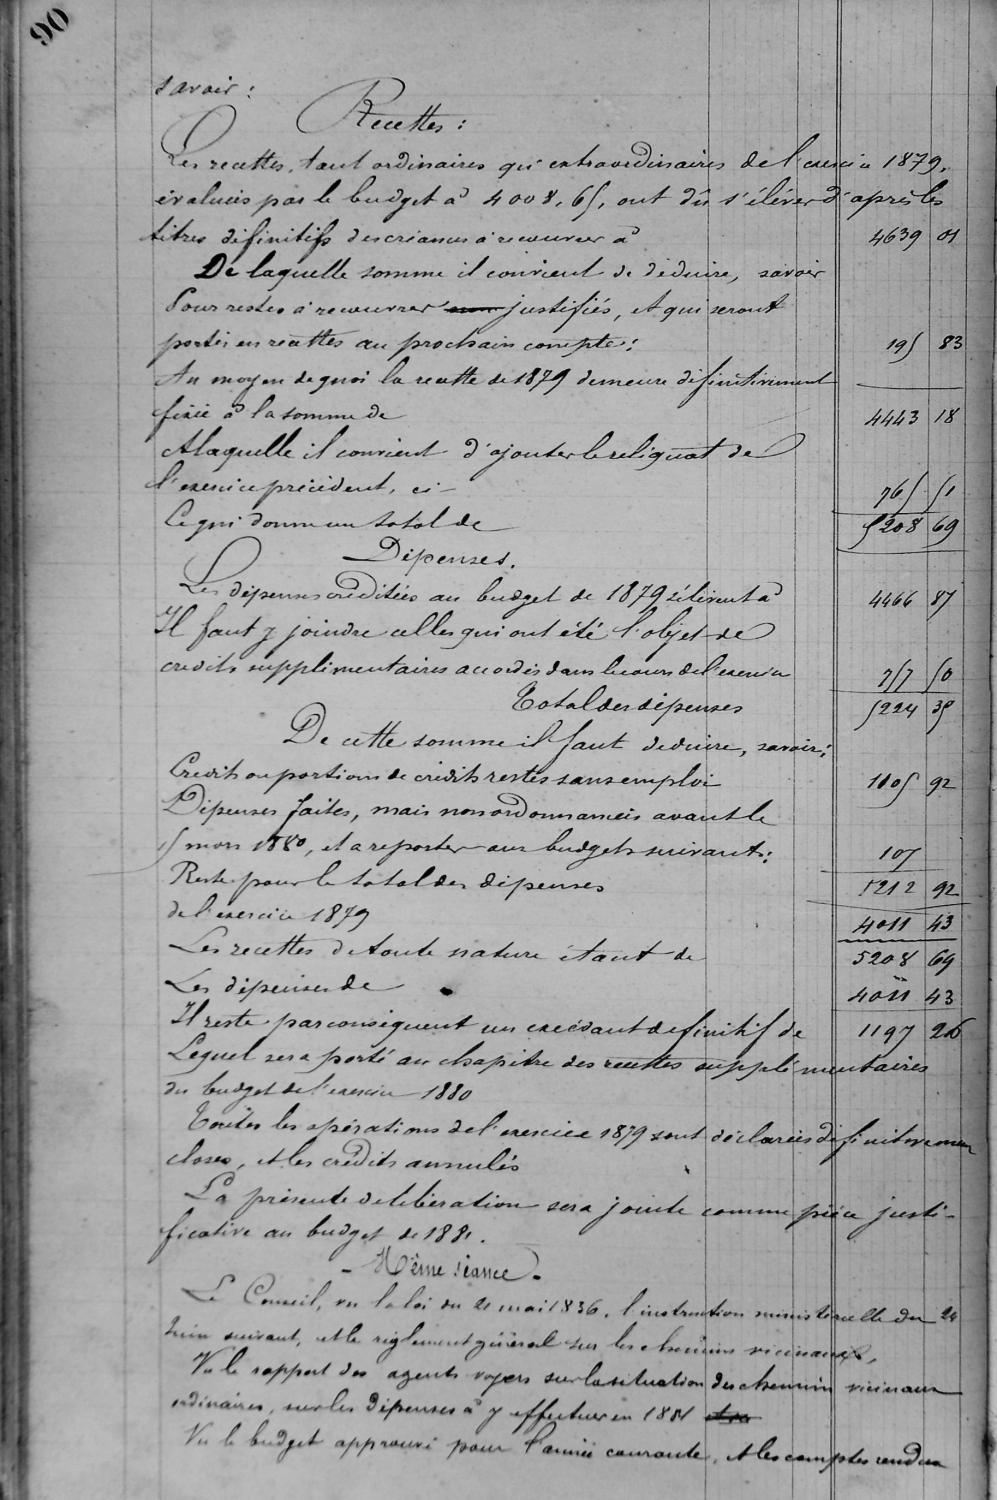 90
savoir :
Recettes :
Les recettes, tant ordinaires qu'extraordinaires de l'exercice 1879,
évaluées par le budget à 4008,65, ont dû s'élever d'après les
titres définitifs des créances à recouvrer à 4639 01
De laquelle somme il convient de déduire, savoir
Pour restes à recouvrer justifiés, et qui seront
portés en recettes au prochain compte : 195 83
Au moyen de quoi la recette de 1879 demeure définitivement
fixée à la somme de 4443 18
A laquelle il convient d'ajouter le reliquat de
l'exercice précédent, ci - 765 51
Ce qui donne un total de 5208 69
Dépenses.
Les dépenses créditées au budget de 1879 s'élèvent à 4466 87
Il faut y joindre celles qui ont été l'objet de
crédits supplémentaires accordés dans le cours de l'exercice 757 50
Total des dépenses 5224 35
De cette somme il faut déduire, savoir :
Crédits ou portions de crédits restés sans emploi 1105 92
Dépenses faites, mais non ordonnancées avant le
15 mars 1880, et a reporter aux budgets suivants : 107
Reste pour le total des dépenses 1212 92
de l'exercice 1879 4011 43
Les recettes de toute nature étant de 5208 69
Les dépenses de 4011 43
Il reste par conséquent un excédant définitif de 1197 26
Lequel sera porté au chapitre des recettes supplémentaires
du budget de l'exercice 1880
Toutes les opérations de l'exercice 1879 sont déclarées définitivement
closes, et les crédits annulés
La présente délibération sera jointe comme pièce justi-
ficative au budget de 1881.
- Même séance -
Le Conseil, vu la loi du 21 mai 1836, l'instruction ministérielle du 24
Juin suivant, et le règlement général sur les chemins vicinaux,
Vu le rapport des agents voyers sur la situation des chemins vicinaux
ordinaires, sur les dépenses à y effectuer en 1881
Vu le budget approuvé pour l'année courante, et les comptes rendus